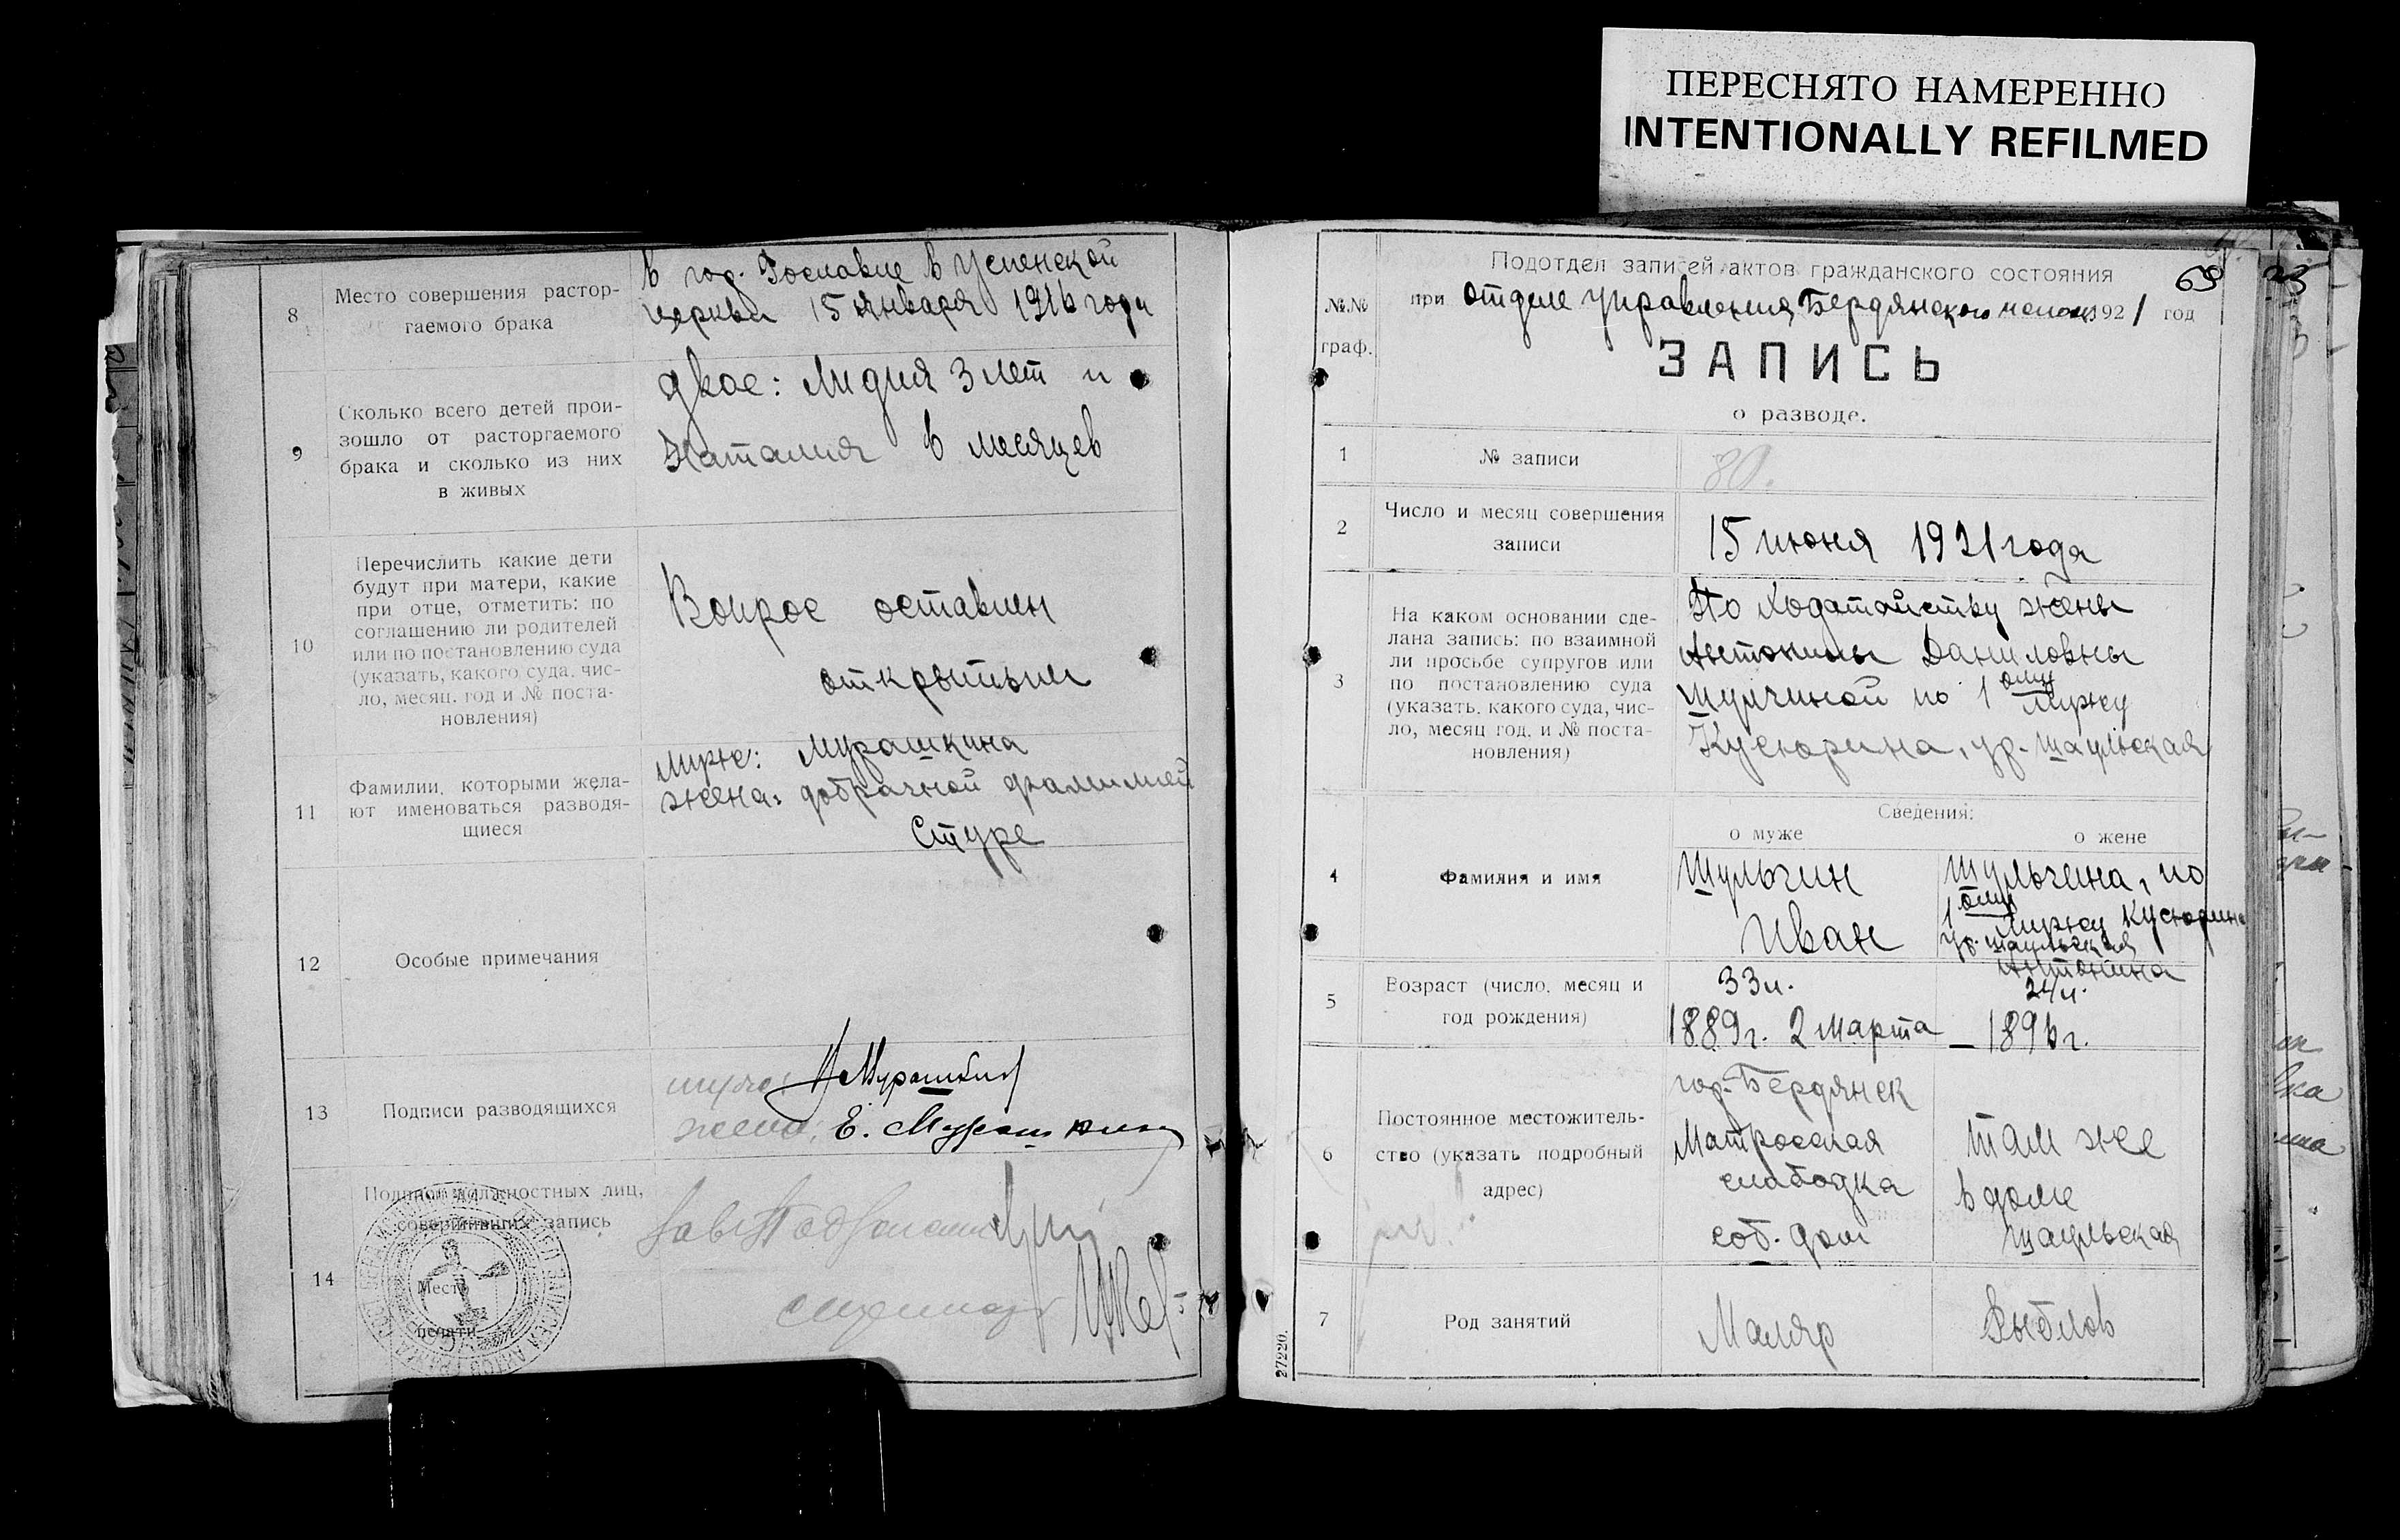 ПЕРЕСНЯТО НАМЕРЕННО
INTENTIONALLY REFILMED
8
Место совершения растор-
гаемого брака
в гор. Рославле в Успенской
церкви 15 января 1916 года
9
Сколько всего детей прои-
зошло от расторгаемого
брака и сколько из них
в живых
двое: Лидия 3 лет и
Наталия 6 месяцев
10
Перечислить какие дети
будут при матери, какие
при отце, отметить: по
соглашению ли родителей
или по постановлению суда
(указать, какого суда, чис-
ло, месяц, год и № поста-
новления)
Вопрос оставлен
открытым
11
Фамилии, которыми жела-
ют именоваться разводя-
щиеся
муж: Мурашкина
жена: добрачной фамилией
Стуре
12
Особые примечания
13
Подписи разводящихся
муж: Мурашкин
жена: Е. Мурашкина
14
Подписи должностных лиц,
совершивших запись
Место
печати
69
Подотдел записей актов гражданского состояния
№.№
граф.
при отделе управления Бердянского 1921 год
ЗАПИСЬ
о разводе.
1
№ записи
80.
2
Число и месяц совершения
записи
15 июня 1921 года
3
На каком основании сде-
лана запись: по взаимной
ли просьбе супругов или
по постановлению суда
(указать, какого суда, чис-
ло, месяц год, и № поста-
новления)
По ходатайству жены
Антонины Даниловны
Шульгиной по 1ому мужу
Кусюрина, ур. Шаульская
Сведения:
о муже
о жене
4
Фамилия и имя
Шульгин
Иван
Шульгина, по
1ому мужу Кусюрина
ур. Шаульская
Антонина
5
Возраст (число, месяц и
год рождения)
33 л.
1889 г. 2 марта
24 л.
– 1896 г.
6
Постоянное местожитель-
ство (указать подробный
адрес)
гор. Бердянск
Матросская
слободка
соб. дом
там же
в доме
Шаульская
7
Род занятий
Маляр
Рыблов
27220.